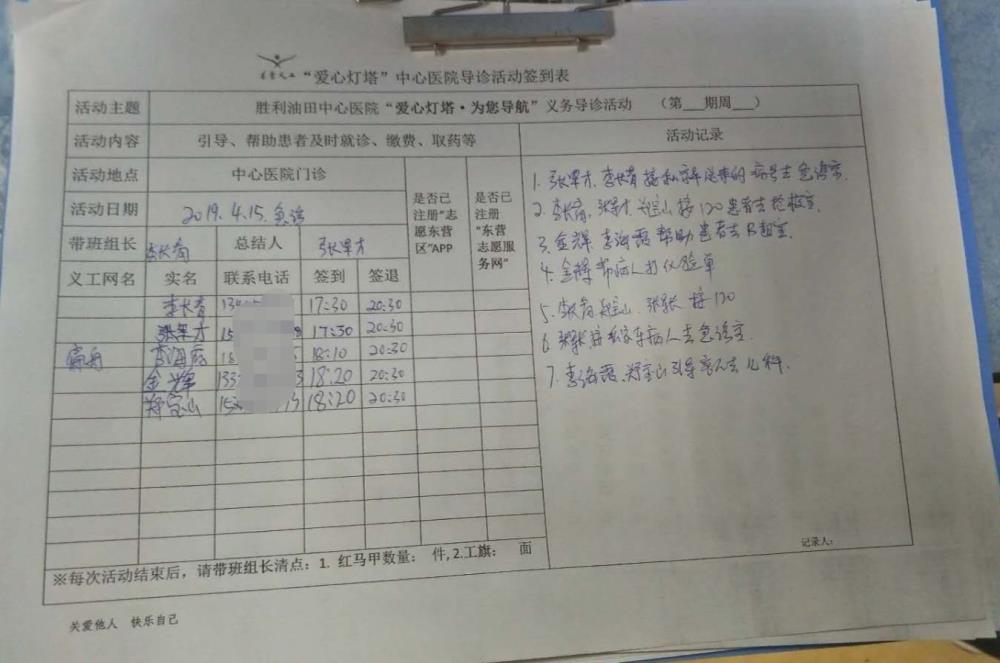 “爱心灯塔”中心医院导诊活动签到表
活动主题 胜利油田中心医院“爱心灯塔·为您导航”义务导诊活动 （第___期周___）
活动内容 引导、帮助患者及时就诊、缴费、取药等 活动记录
活动地点 中心医院门诊 是否已注册“志愿东营区”APP 是否已注册“东营志愿服务网”
活动日期 2019.4.15.急诊
带班组长 李长青 总结人 张军才
义工网名 实名 联系电话 签到 签退
李长青 17:30 20:30
张军才 17:30 20:30
李海霞 18:10 20:30
金辉 133 18:20 20:30
郑宝山 18:20 20:30
1. 张军才、李长青接私家车送来的病号去急诊室.
2. 李长青、张军才、郑宝山接120患者去抢救室.
3. 金辉、李海霞帮助患者去B超室.
4. 金辉帮病人打化验单
5. 李长青 郑宝山、接120
6. 接私家车病人去急诊室.
7. 李海霞、郑宝山引导病人去儿科.
记录人：
※每次活动结束后，请带班组长清点：1. 红马甲数量： 件, 2.工旗： 面
关爱他人 快乐自己